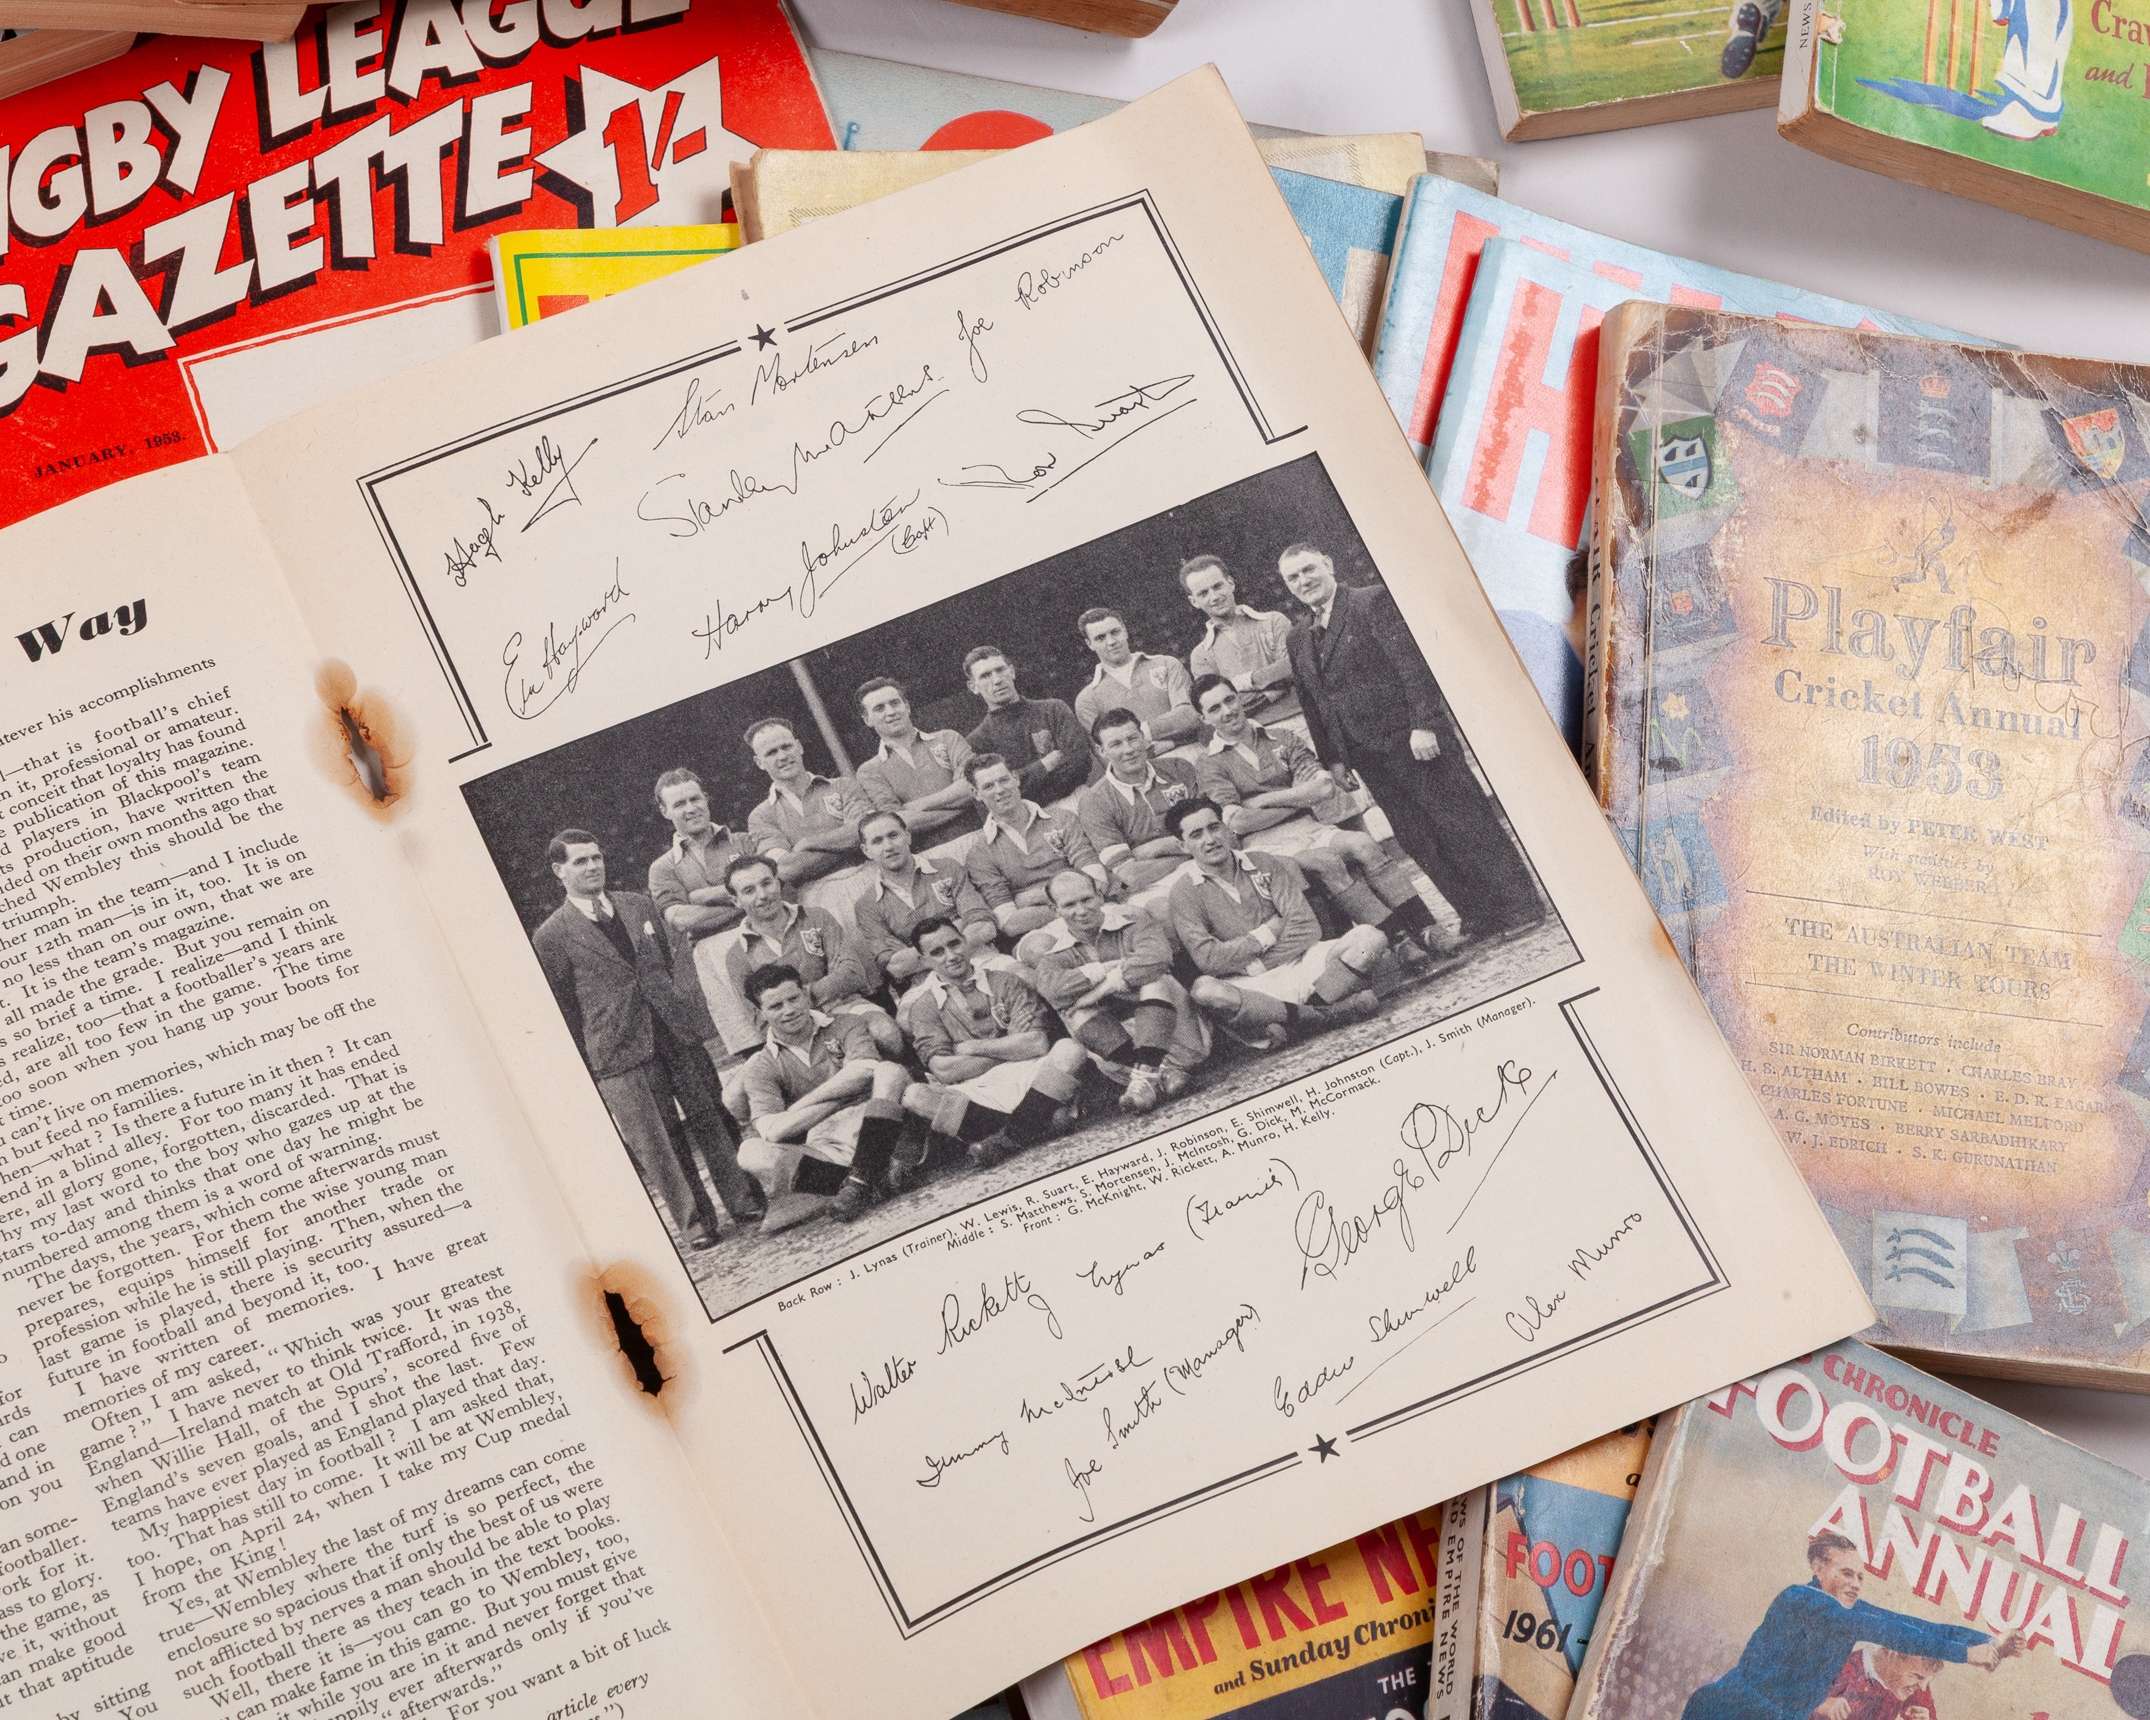 RUGBY LEAGUE
GAZETTE 1/-
JANUARY, 1953.
NEWS
and
Way
whatever his accomplishments
—that is football's chief
in it, professional or amateur.
conceit that loyalty has found
publication of this magazine.
players in Blackpool's team
production, have written the
on their own months ago that
Wembley this should be the
triumph.
her man in the team—and I include
our 12th man—is in it, too. It is on
no less than on our own, that we are
It is the team's magazine.
all made the grade. But you remain on
so brief a time. I realize—and I think
realize, too—that a footballer's years are
are all too few in the game. The time
too soon when you hang up your boots for
time.
can't live on memories, which may be off the
but feed no families.
then—what? Is there a future in it then? It can
end in a blind alley. For too many it has ended
all glory gone, forgotten, discarded. That is
my last word to the boy who gazes up at the
stars to-day and thinks that one day he might be
numbered among them is a word of warning.
The days, the years, which come afterwards must
never be forgotten. For them the wise young man
prepares, equips himself for another trade or
profession while he is still playing. Then, when the
last game is played, there is security assured—a
future in football and beyond it, too.
I have written of memories. I have great
memories of my career.
Often I am asked, "Which was your greatest
game?" I have never to think twice. It was the
England—Ireland match at Old Trafford, in 1938,
when Willie Hall, of the Spurs', scored five of
England's seven goals, and I shot the last. Few
teams have ever played as England played that day.
My happiest day in football? I am asked that,
too. That has still to come. It will be at Wembley,
I hope, on April 24, when I take my Cup medal
from the King!
Yes, at Wembley the last of my dreams can come
true—Wembley where the turf is so perfect, the
enclosure so spacious that if only the best of us were
not afflicted by nerves a man should be able to play
such football there as they teach in the text books.
Well, there it is—you can go to Wembley, too,
can make fame in this game. But you must give
it while you are in it and never forget that
happily ever afterwards only if you've
"afterwards."
For you want a bit of luck
article every
for
can
one
and in
on you
an some-
footballer.
work for it.
pass to glory.
the game, as
it, without
can make good
that aptitude
by sitting
You
Hugh Kelly
Stan Mortensen
Joe Robinson
Stanley Matthews
Ron Suart
Harry Johnston
(Capt)
Eric Hayward
Back Row: J. Lynas (Trainer), W. Lewis, R. Suart, E. Hayward, J. Robinson, E. Shimwell, H. Johnston (Capt.), J. Smith (Manager).
Middle: S. Matthews, S. Mortensen, J. McIntosh, G. Dick, M. McCormack.
Front: G. McKnight, W. Rickett, A. Munro, H. Kelly.
Walter Rickett
J Lynas (Trainer)
George Dick
Jimmy McIntosh
Joe Smith (Manager)
Eddie Shimwell
Alex Munro
Playfair
Cricket Annual
1953
Edited by PETER WEST
With statistics by
ROY WEBBER
THE AUSTRALIAN TEAM
THE WINTER TOURS
Contributors include
SIR NORMAN BIRKETT · CHARLES BRAY
H. S. ALTHAM · BILL BOWES · E. D. R. EAGAR
CHARLES FORTUNE · MICHAEL MELFORD
A. G. MOYES · BERRY SARBADHIKARY
W. J. EDRICH · S. K. GURUNATHAN
CHRONICLE
FOOTBALL
ANNUAL
EMPIRE NE
and Sunday Chroni
THE
NEWS OF THE WORLD
AND EMPIRE NEWS
FOOT
1961-